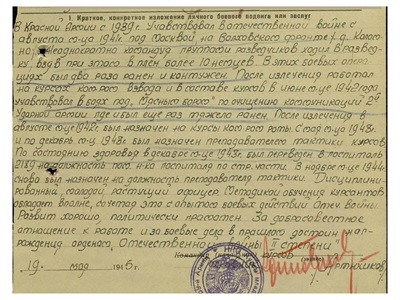 I. Краткое, конкретное изложение личного боевого подвига или заслуг
В Красной Армии с 1939г. Участвовал в отечественной войне с
августа с.ца 1941г. под Москвой, на Волховском фронте
неоднократно командуя группой разведчиков ходил в развед-
ку, взяв при этом в плен более 10 немцев. В этих боевых опера-
циях был два раза ранен и контужен. После излечения работал
на курсах ком. взвода и в составе курсов в июне с.ца 1942 года
участвовал в боях под "Мясным Бором" по очищению коммуникаций 2ой
Ударной армии где и был еще раз тяжело ранен. После излечения в
августе 1942г. был назначен на курсы роты. С
и по декабрь был назначен преподавателем тактики курсов
По состоянию здоровья в декабре был переведен в госпиталь
на должность госпиталя по стр. части. В ноябре 1944г.
снова был назначен на должность преподавателя тактики. Дисциплини-
рованный, молодой, растущий офицер. Методикой обучения курсантов
обладает вполне, сочетая это с опытом боевых действий Отеч. Войны
Развит хорошо, политически грамотен. За добросовестное
отношение к работе и за боевые дела в прошлом достоин наг-
раждения орденом "Отечественной войны II степени
курсов
19 мая 1945 г.